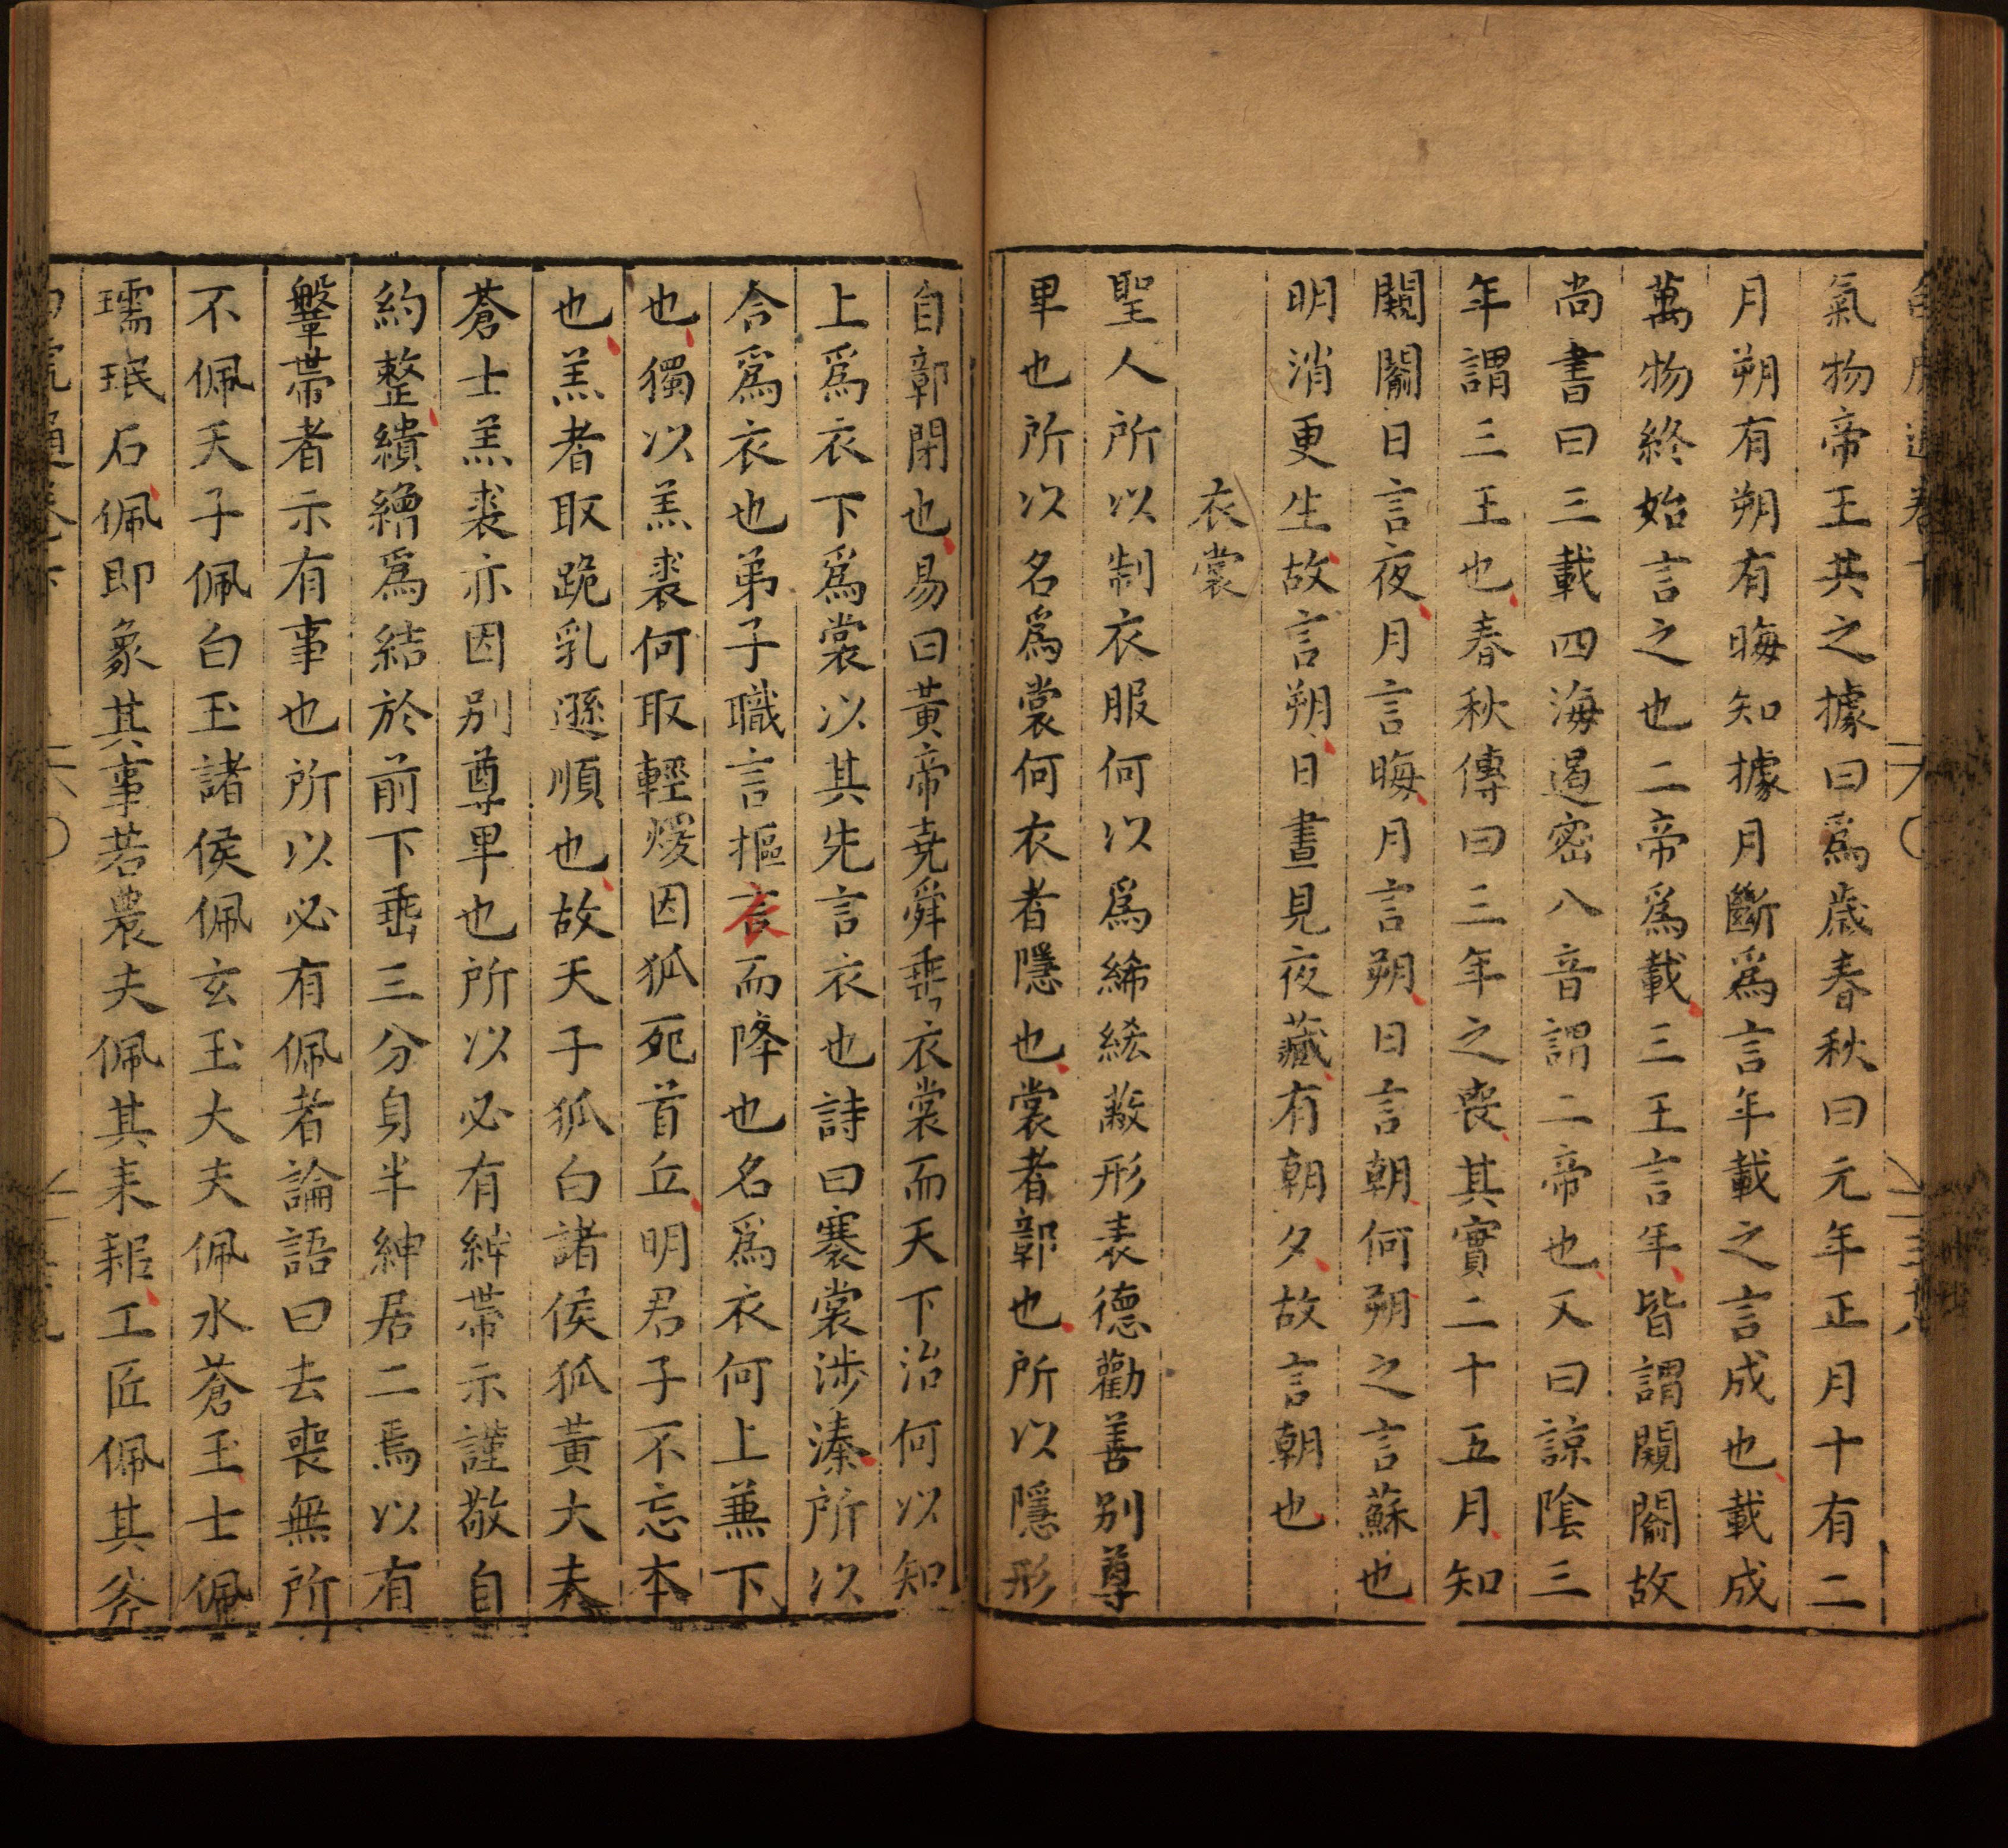 氣物帝王共之據曰爲歲春秋曰元年正月十有二
月朔有朔有晦知據月斷爲言年載之言成也載成
萬物終始言之也二帝爲載三王言年皆謂闚闚故
尚書曰三載四海遏密八音謂二帝也又曰諒陰三
年謂三王也春秋傳曰三年之喪其實二十五月知
闚闚日言夜月言晦月言朔日言朝何朔之言蘇也
明消更生故言朔日晝見夜藏有朝夕故言朝也
衣裳
聖人所以制衣服何以爲絺綌蔽形表德勸善別尊
卑也所以名爲裳何衣者隱也裳者鄣也所以隱形
自鄣閉也易曰黃帝堯舜垂衣裳而天下治何以知
上爲衣下爲裳以其先言衣也詩曰褰裳涉溱所以
合爲衣也弟子職言摳衣而降也名爲衣何上兼下
也獨以羔裘何取輕煖因狐死首丘明君子不忘本
也羔者取跪乳遜順也故天子狐白諸侯狐黃大夫
蒼士羔裘亦因別尊卑也所以必有紳帶示謹敬自
約整繢繒爲結於前下垂三分身半紳居二焉以有
鞶帶者示有事也所以必有佩者論語曰去喪無所
不佩天子佩白玉諸侯佩玄玉大夫佩水蒼玉士佩
瓀珉石佩即象其事若農夫佩其耒耜工匠佩其斧